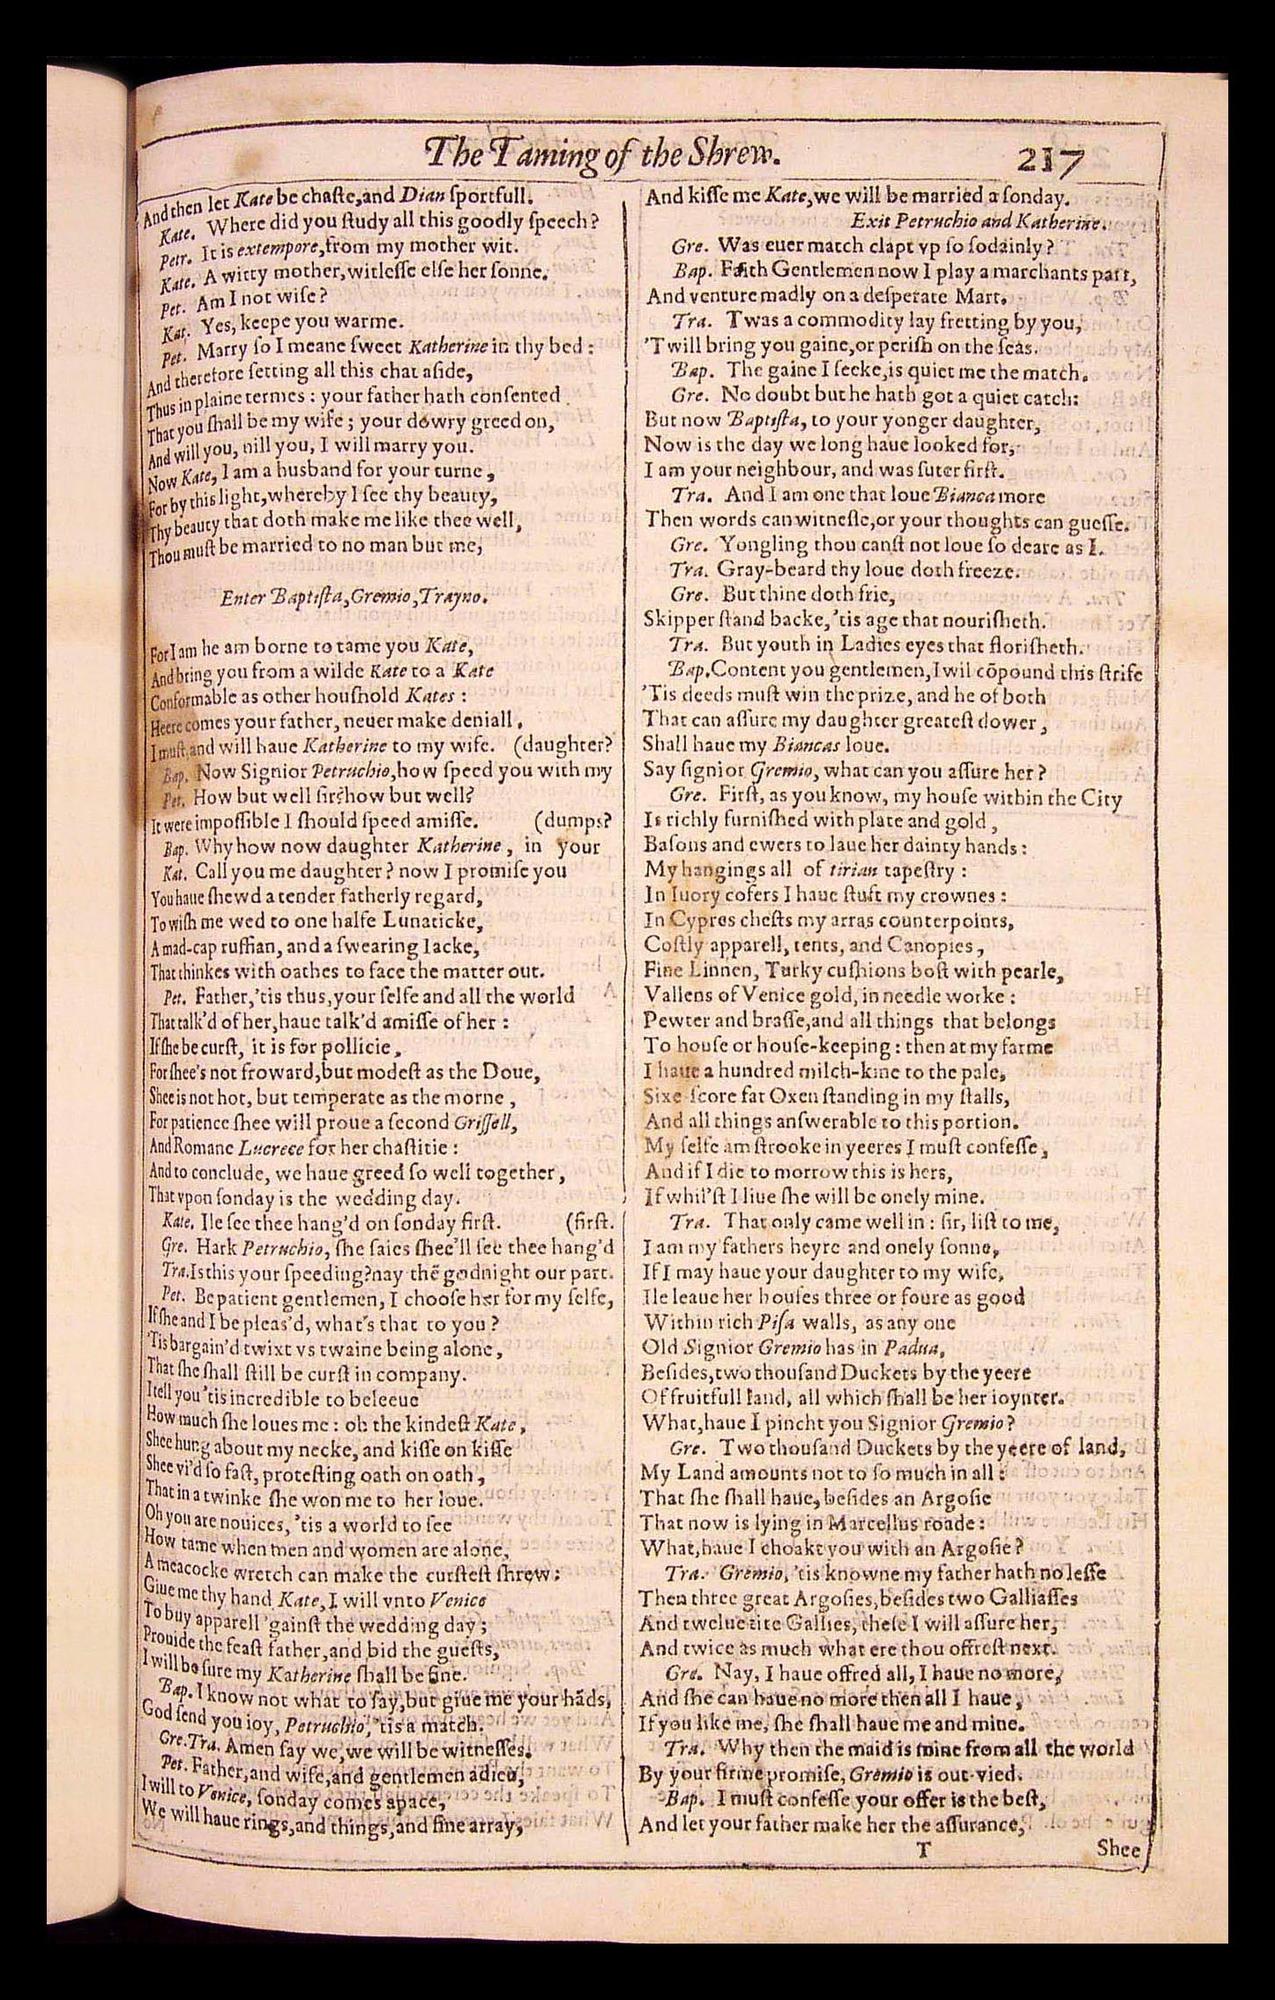 The Taming of the Shrew. 217
And then let Kate be chaſte,and Dian ſportfull.
Kate. Where did you ſtudy all this goodly ſpeech?
Petr. It is extempore,from my mother wit.
Kate. A witty mother,witleſſe elſe her ſonne.
Pet. Am I not wiſe?
Kat. Yes, keepe you warme.
Pet. Marry ſo I meane ſweet Katherine in thy bed :
And therefore ſetting all this chat aſide,
Thus in plaine termes : your father hath conſented
That you ſhall be my wife ; your dowry greed on,
And will you, nill you, I will marry you.
Now Kate, I am a husband for your turne,
For by this light,whereby I ſee thy beauty,
Thy beauty that doth make me like thee well,
Thou muſt be married to no man but me,
Enter Baptiſta,Gremio,Trayno.
For I am he am borne to tame you Kate,
And bring you from a wilde Kate to a Kate
Conformable as other houſhold Kates :
Heere comes your father, neuer make deniall,
I muſt,and will haue Katherine to my wife. (daughter?
Bap. Now Signior Petruchio,how ſpeed you with my
Pet. How but well ſir?how but well?
It were impoſſible I ſhould ſpeed amiſſe. (dumps?
Bap. Why how now daughter Katherine, in your
Kat. Call you me daughter? now I promiſe you
You haue ſhewd a tender fatherly regard,
To wiſh me wed to one halfe Lunaticke,
A mad-cap ruffian, and a ſwearing Iacke,
That thinkes with oathes to face the matter out.
Pet. Father,'tis thus,your ſelfe and all the world
That talk'd of her,haue talk'd amiſſe of her :
If ſhe be curſt, it is for pollicie,
For ſhee's not froward,but modeſt as the Doue,
Shee is not hot, but temperate as the morne,
For patience ſhee will proue a ſecond Griſſell,
And Romane Lucrece for her chaſtitie :
And to conclude, we haue greed ſo well together,
That vpon ſonday is the wedding day.
Kate. Ile ſee thee hang'd on ſonday firſt. (firſt.
Gre. Hark Petruchio, ſhe ſaies ſhee'll ſee thee hang'd
Tra.Is this your ſpeeding?nay thẽ godnight our part.
Pet. Be patient gentlemen, I chooſe her for my ſelfe,
If ſhe and I be pleas'd, what's that to you?
'Tis bargain'd twixt vs twaine being alone,
That ſhe ſhall ſtill be curſt in company.
I tell you 'tis incredible to beleeue
How much ſhe loues me : oh the kindeſt Kate,
Shee hung about my necke, and kiſſe on kiſſe
Shee vi'd ſo faſt, proteſting oath on oath,
That in a twinke ſhe won me to her loue.
Oh you are nouices, 'tis a world to ſee
How tame when men and women are alone,
A meacocke wretch can make the curſteſt ſhrew :
Giue me thy hand Kate, I will vnto Venice
To buy apparell 'gainſt the wedding day;
Prouide the feaſt father,and bid the gueſts,
I will be ſure my Katherine ſhall be fine.
Bap. I know not what to ſay,but giue me your hãds,
God ſend you ioy, Petruchio, 'tis a match.
Gre.Tra. Amen ſay we,we will be witneſſes.
Pet. Father,and wife,and gentlemen adieu,
I will to Venice, ſonday comes apace,
We will haue rings,and things,and fine array,
And kiſſe me Kate,we will be married a ſonday.
Exit Petruchio and Katherine.
Gre. Was euer match clapt vp ſo ſodainly?
Bap. Faith Gentlemen now I play a marchants part,
And venture madly on a deſperate Mart.
Tra. Twas a commodity lay fretting by you,
'Twill bring you gaine,or periſh on the ſeas.
Bap. The gaine I ſeeke,is quiet me the match.
Gre. No doubt but he hath got a quiet catch:
But now Baptiſta, to your yonger daughter,
Now is the day we long haue looked for,
I am your neighbour, and was ſuter firſt.
Tra. And I am one that loue Bianca more
Then words can witneſſe,or your thoughts can gueſſe.
Gre. Yongling thou canſt not loue ſo deare as I.
Tra. Gray-beard thy loue doth freeze.
Gre. But thine doth frie,
Skipper ſtand backe,'tis age that nouriſheth.
Tra. But youth in Ladies eyes that floriſheth.
Bap.Content you gentlemen,I wil cõpound this ſtrife
'Tis deeds muſt win the prize, and he of both
That can aſſure my daughter greateſt dower,
Shall haue my Biancas loue.
Say ſignior Gremio, what can you aſſure her?
Gre. Firſt, as you know, my houſe within the City
Is richly furniſhed with plate and gold,
Baſons and ewers to laue her dainty hands :
My hangings all of tirian tapeſtry :
In Iuory cofers I haue ſtuft my crownes :
In Cypros cheſts my arras counterpoints,
Coſtly apparell, tents, and Canopies,
Fine Linnen, Turky cuſhions boſt with pearle,
Vallens of Venice gold, in needle worke :
Pewter and braſſe,and all things that belongs
To houſe or houſe-keeping : then at my farme
I haue a hundred milch-kine to the pale,
Sixe-ſcore fat Oxen ſtanding in my ſtalls,
And all things anſwerable to this portion.
My ſelfe am ſtrooke in yeeres I muſt confeſſe,
And if I die to morrow this is hers,
If whil'ſt I liue ſhe will be onely mine.
Tra. That only came well in : ſir, liſt to me,
I am my fathers heyre and onely ſonne,
If I may haue your daughter to my wife,
Ile leaue her houſes three or foure as good
Within rich Piſa walls, as any one
Old Signior Gremio has in Padua,
Beſides,two thouſand Duckets by the yeere
Of fruitfull land, all which ſhall be her ioynter.
What,haue I pincht you Signior Gremio?
Gre. Two thouſand Duckets by the yeere of land,
My Land amounts not to ſo much in all :
That ſhe ſhall haue, beſides an Argoſie
That now is lying in Marcellus roade :
What,haue I choakt you with an Argoſie?
Tra. Gremio, 'tis knowne my father hath no leſſe
Then three great Argoſies,beſides two Galliaſſes
And twelue tite Gallies, theſe I will aſſure her,
And twice as much what ere thou offreſt next.
Gre. Nay, I haue offred all, I haue no more,
And ſhe can haue no more then all I haue,
If you like me, ſhe ſhall haue me and mine.
Tra. Why then the maid is mine from all the world
By your firme promiſe, Gremio is out-vied.
Bap. I muſt confeſſe your offer is the beſt,
And let your father make her the aſſurance,
T Shee